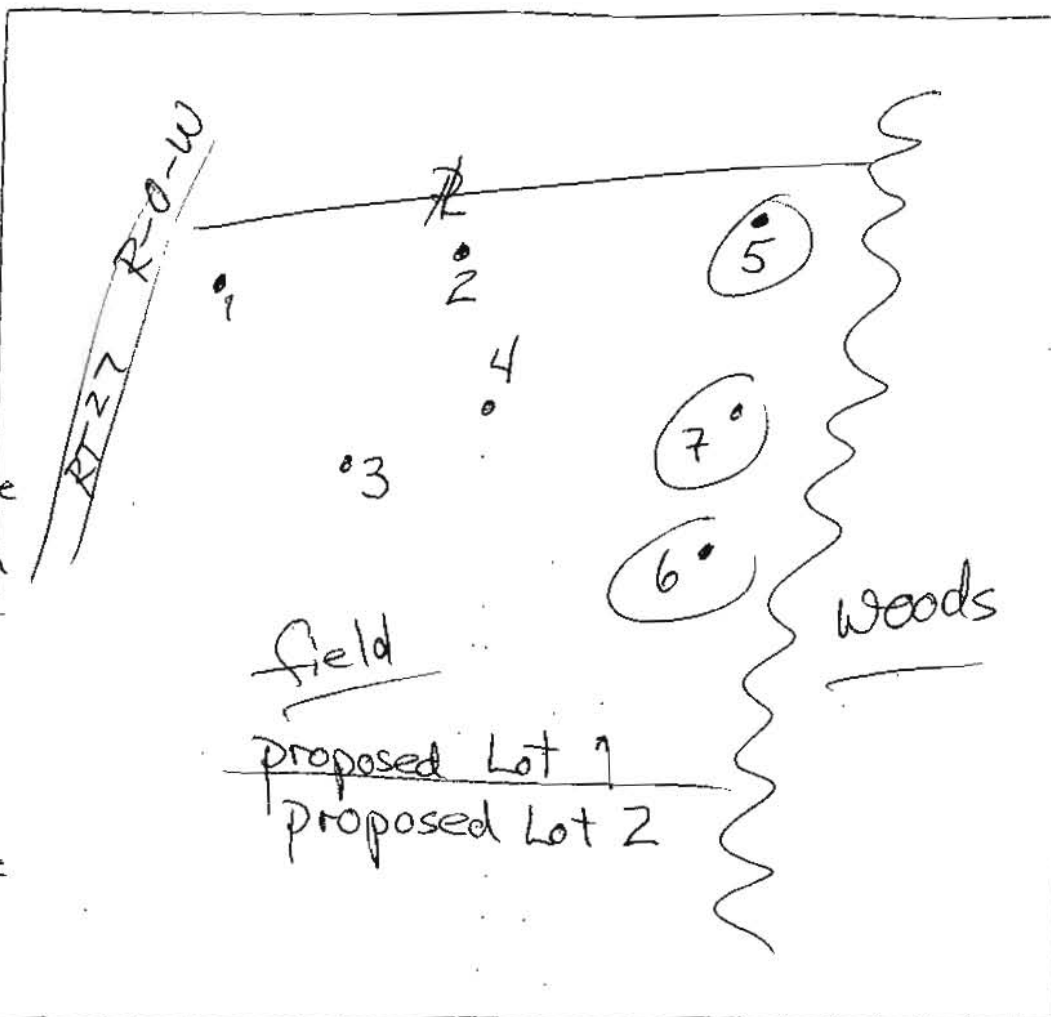 R-O-W
RT 27
PL
1
2
5
4
3
7
6
field
Woods
proposed Lot 1
proposed Lot 2